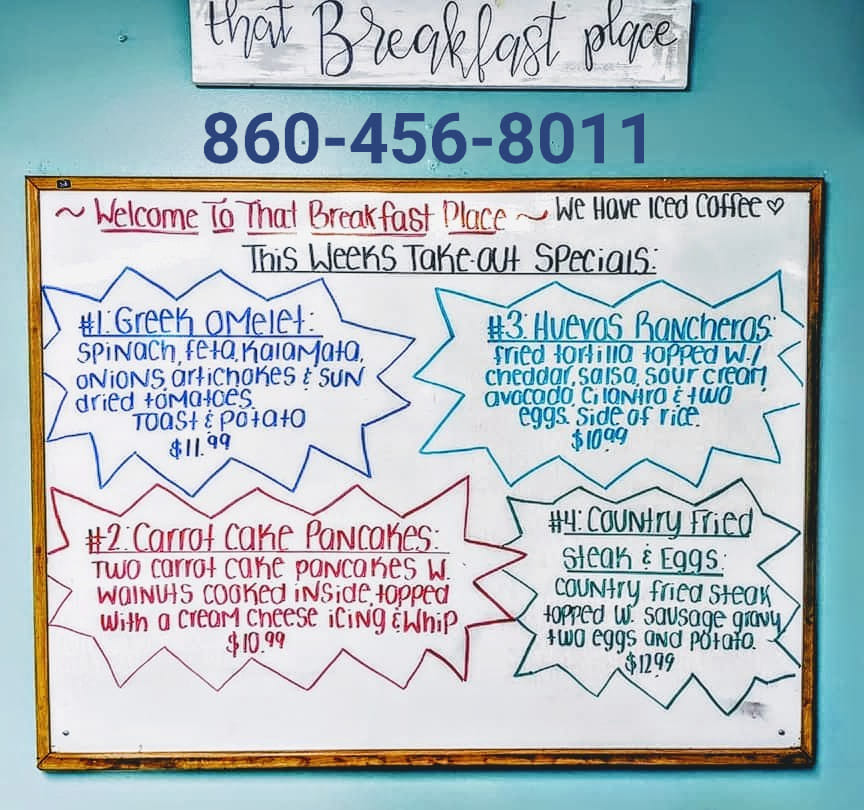 that Breakfast place
860-456-8011
~ Welcome To That Breakfast Place ~ We Have Iced Coffee ♡
This Weeks Take-out Specials:
#1: Greek Omelet:
Spinach, feta, Kalamata,
onions, artichokes & sun
dried tomatoes.
Toast & Potato
$11.99
#3: Huevos Rancheros:
fried tortilla topped w/
cheddar, salsa, sour cream,
avocado, cilantro & two
eggs. Side of rice.
$10.99
#2: Carrot Cake Pancakes:
Two carrot cake pancakes w.
walnuts cooked inside, topped
with a cream cheese icing & whip
$10.99
#4: Country Fried
Steak & Eggs:
country fried steak
topped w. sausage gravy
two eggs and potato.
$12.99